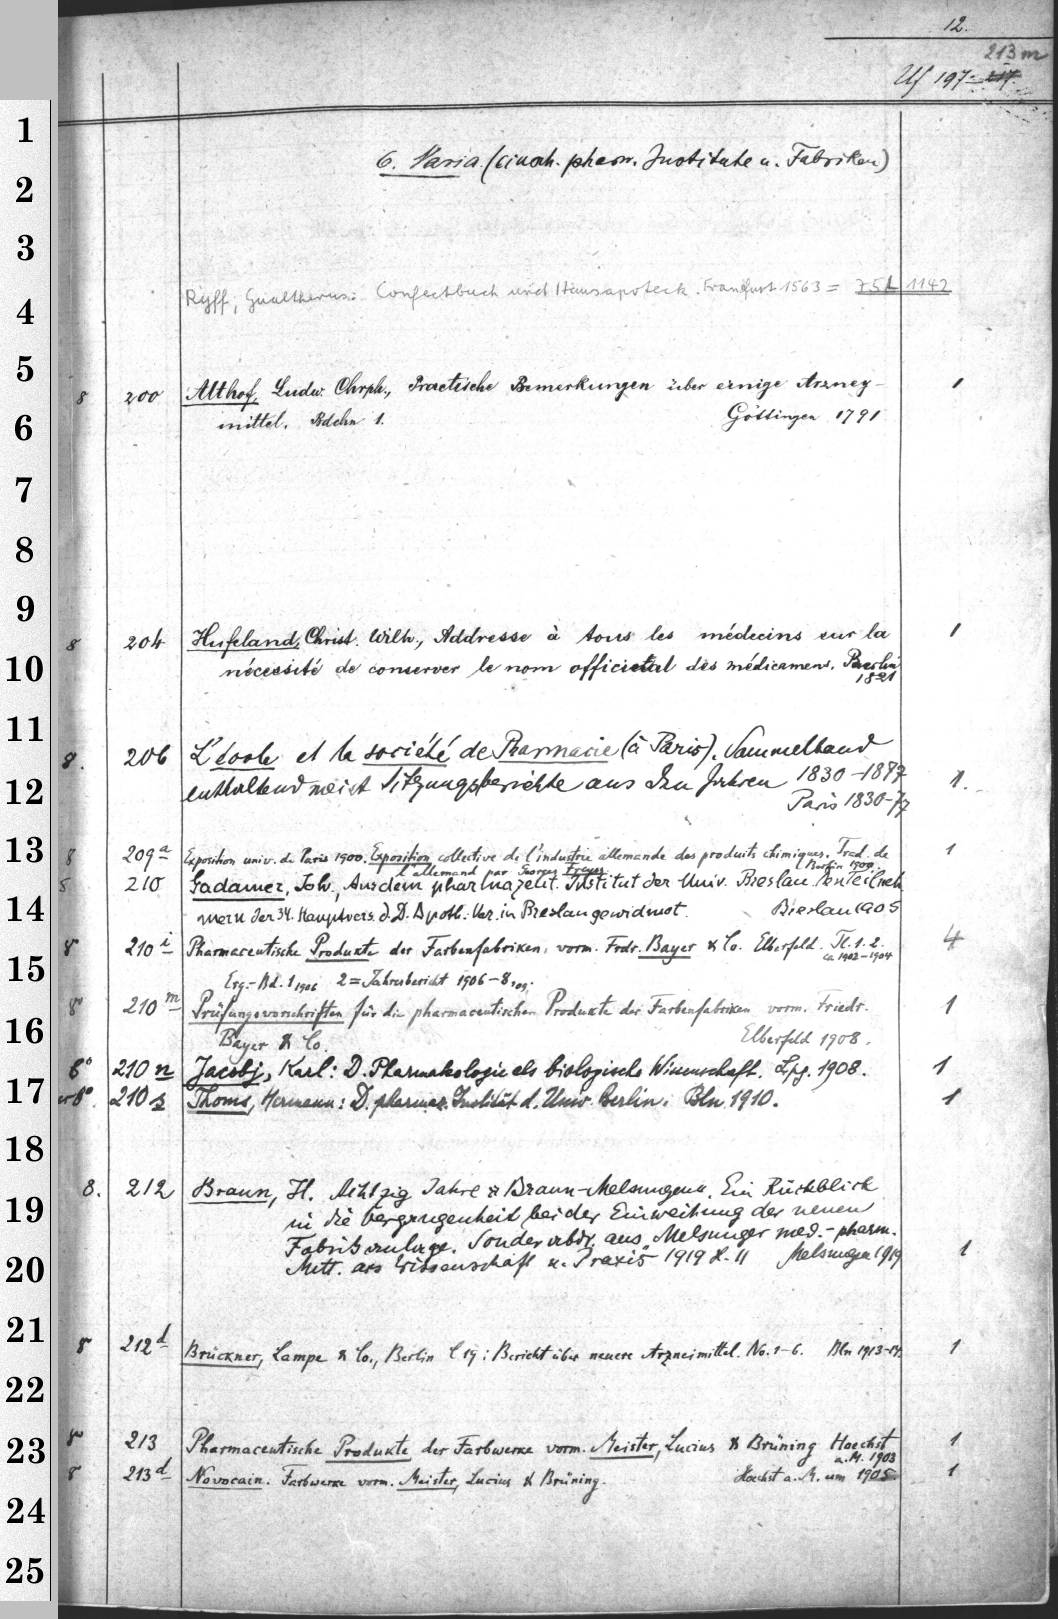 12.
213m
Uf 197-217
1
6. Varia (einsch. pharm. Institute u. Fabriken)
2
3
Ryff, Gualtherus: Confectbuch und Hausapoteck. Frankfurt 1563 = 75L 1142
4
5
8 200 Althof, Ludw. Chrph., Practische Bemerkungen über einige Arzney- 1
6
mittel. Bdchn 1. Göttingen 1791
7
8
9
8 204 Hufeland, Christ. Wilh., Addresse à tous les médecins sur la 1
10
nécessité de conserver le nom officiel des médicamens. Berlin
1821
11
8. 206 L'école et la société de Pharmacie (à Paris). Sammelband
12
enthaltend meist Sitzungsberichte aus den Jahren 1830-1877 1.
Paris 1830-77
13
8 209a Exposition univ. de Paris 1900. Exposition collective de l'industrie allemande des produits chimiques. Trad. de 1
l'allemand par Georges Berlin 1900.
210 Gadamer, Joh., Aus dem pharmazeut. Institut der Univ. Breslau. Den Teilneh
14
mern der 34. Hauptvers. d. D. Apoth. Ver. in Breslau gewidmet. Breslau 1905
8 210i Pharmaceutische Produkte der Farbenfabriken, vorm. Frdr. Bayer & Co. Elberfeld. Tl. 1. 2. 4
ca 1902-1904
15
Erg.-Bd. 1 1906 2 = Jahresbericht 1906-8, 09.
8° 210m Prüfungsvorschriften für die pharmaceutischen Produkte der Farbenfabriken vorm. Friedr. 1
16
Bayer & Co. Elberfeld 1908.
8° 210n Jacobj, Karl: D. Pharmakologie als biologische Wissenschaft. Lpg. 1908. 1
17
8° 210s Thoms, Hermann: D. pharmaz. Institut d. Univ. Berlin. Bln 1910. 1
18
8. 212 Braun, H. Achtzig Jahre B Braun-Melsungen. Ein Rückblick
19
in die Vergangenheit bei der Einweihung der neuen
Fabrikanlage. Sonderabdr. aus Melsunger med.-pharm.
20
Mitt. aus Wissenschaft u. Praxis 1919 H. 11 Melsungen 1919 1
21
8 212d Brückner, Lampe & Co., Berlin C 19: Bericht über neuere Arzneimittel. No. 1-6. Bln 1913-14. 1
22
8° 213 Pharmaceutische Produkte der Farbwerke vorm. Meister, Lucius & Brüning Hoechst 1
23
a. M. 1903
8 213d Novocain. Farbwerke vorm. Meister, Lucius & Brüning. Höchst a. M. um 1905 1
24
25